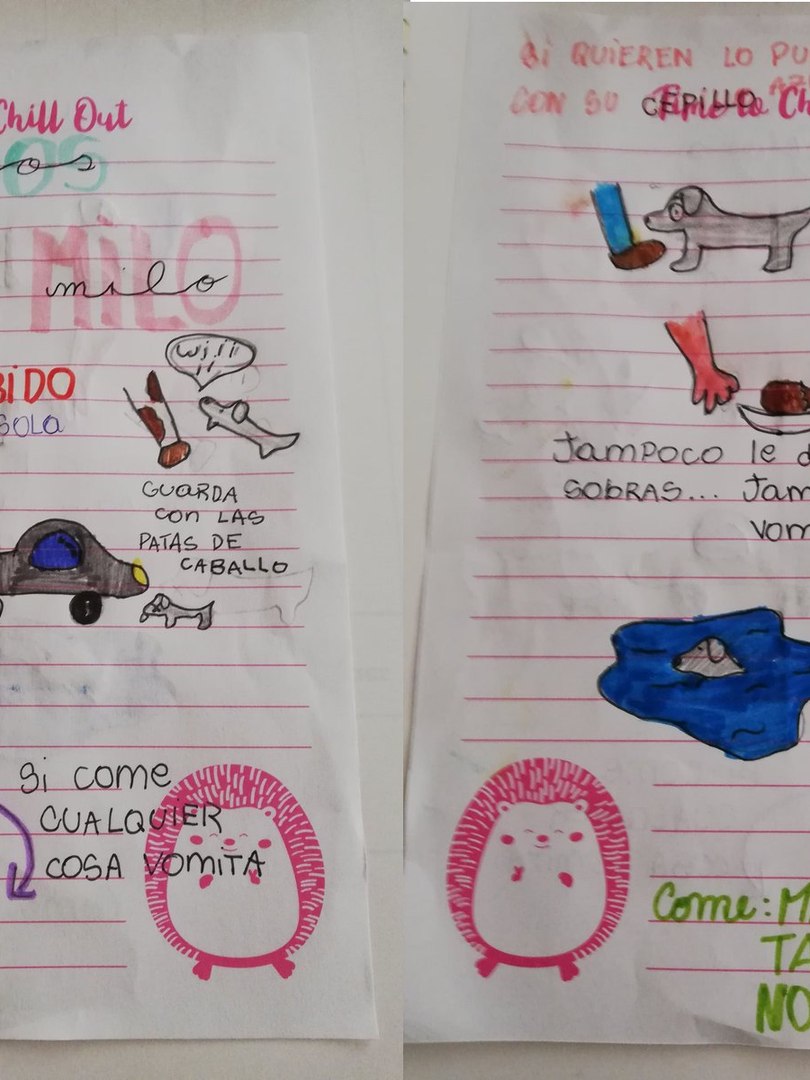 Chill Out
os
MILO
milo
BIDO
SOLA
wiiii
ii
GUARDA
CON LAS
PATAS DE
CABALLO
Si come
CUALQUIER
COSA VOMITA
Si QUIEREN LO PU
CON SU CEPILLO AZ
Time to Ch
TAMPOCO le d
SOBRAS... Tam
vom
Come: M
TA
NO